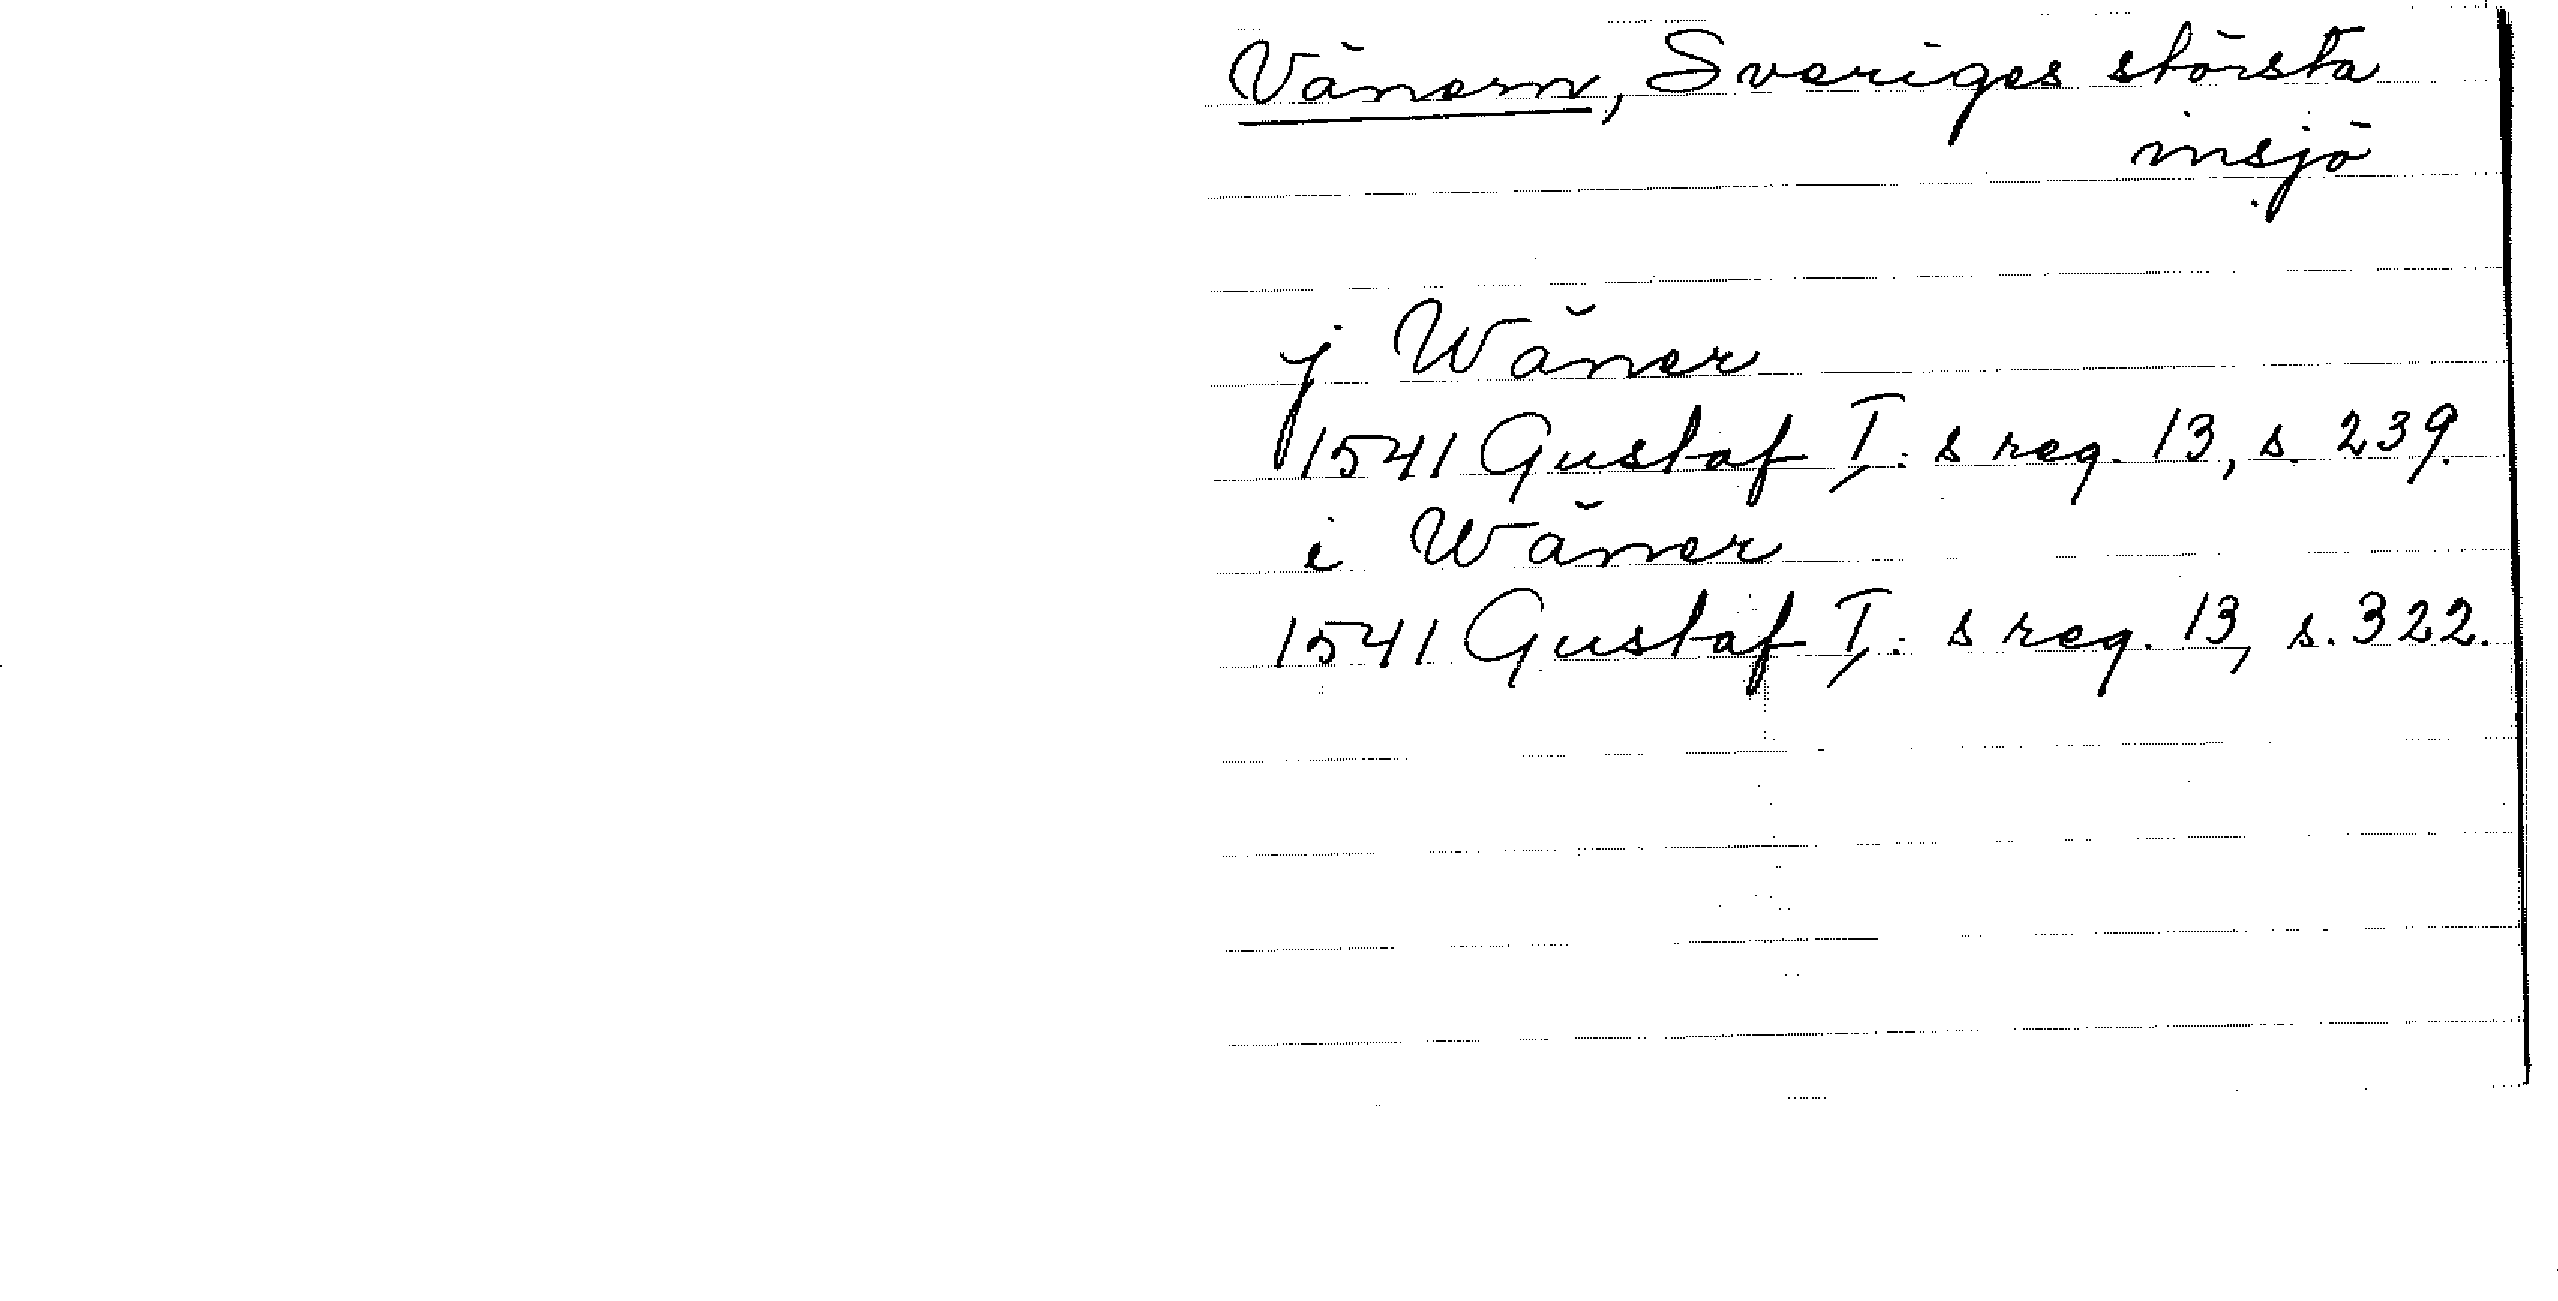 Vänern, Sveriges största
insjö
j Wäner
1541 Gustaf I: s reg. 13, s. 239.
i Wäner
1541 Gustaf I: s reg. 13, s. 322.